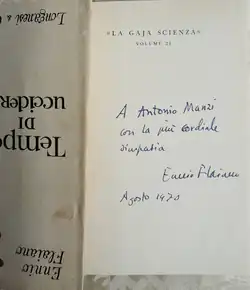 Longanesi &
Tempo
DI
uccidere
Ennio
Flaiano
«LA GAJA SCIENZA»
VOLUME 21
A Antonio Manzi
con la più cordiale
simpatia
Ennio Flaiano
Agosto 1970